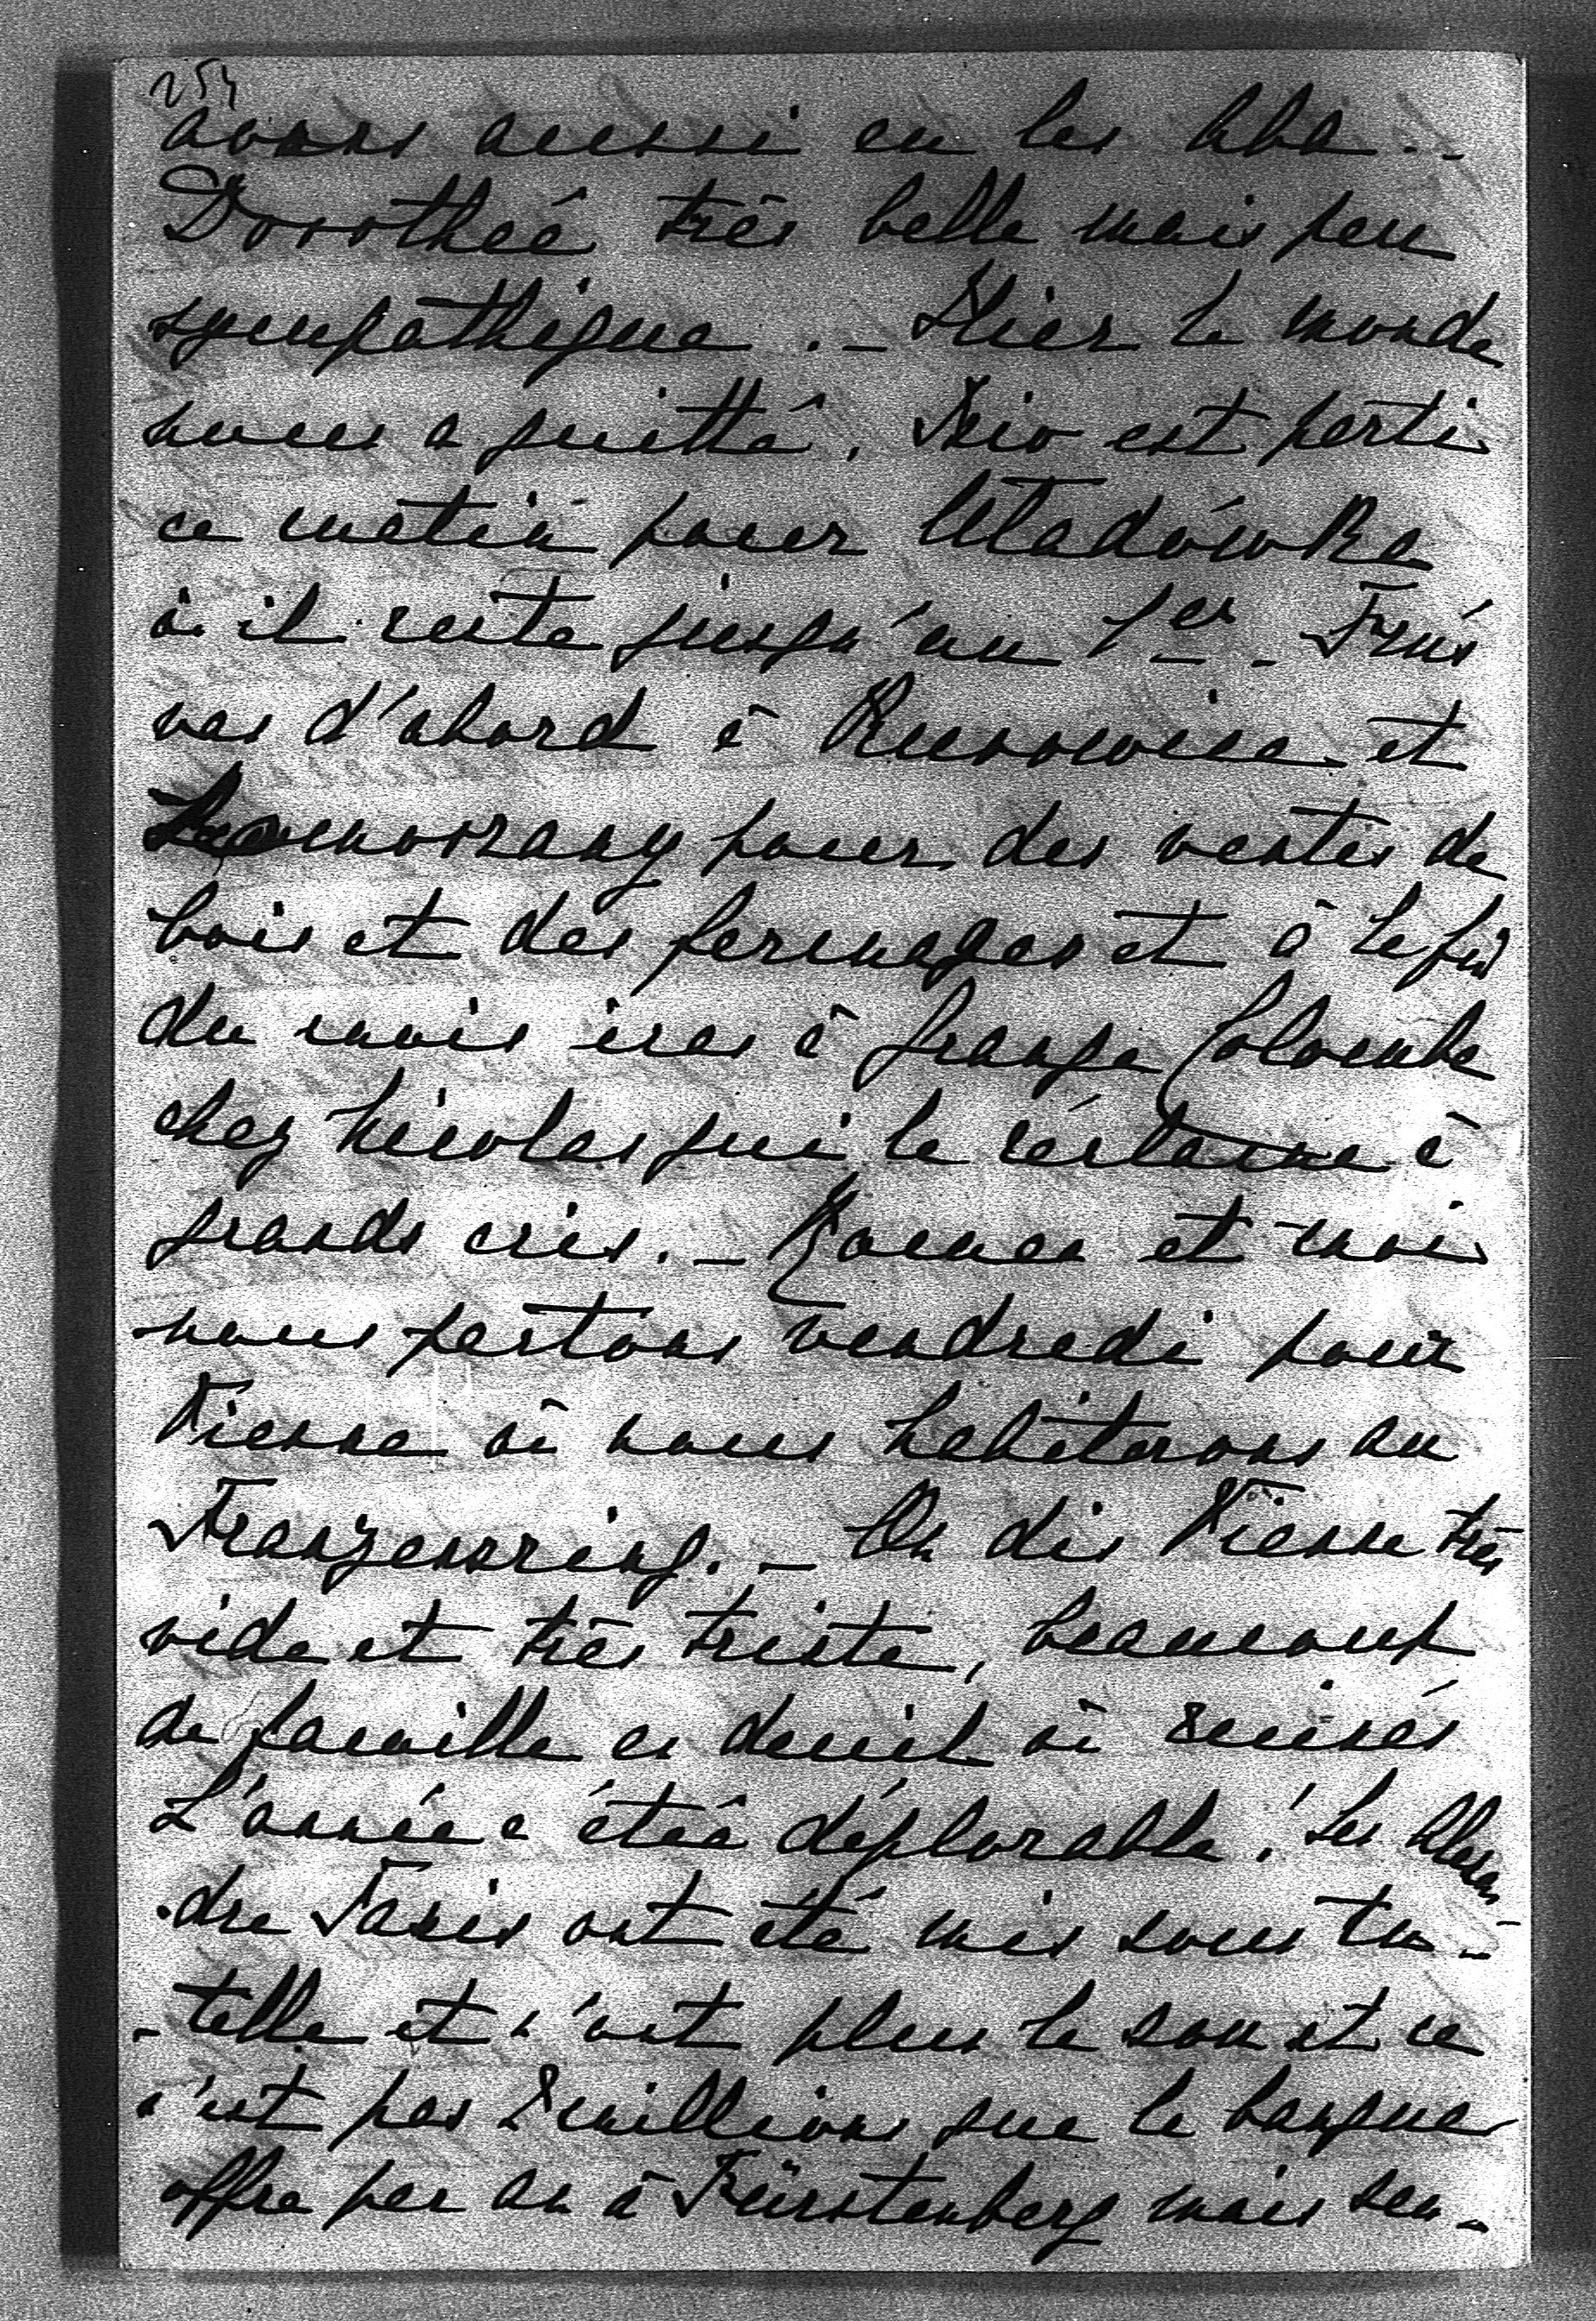 254
avons aussi eu les Aba..
Dorothée très belle mais peu
sympathique. _ Hier le monde
nous a quitté. est parti
ce matin pour Wladówka
où il reste jusqu'au 1er _
vas d'abord à et
pour des ventes de
bois et des fermages et à la fin
du mois iras à Grange Colombe
chez Nicolas qui le réclame à
grands cris. _ et moi
nous partons vendredi pour
Vienne où nous habiterons au
Franzensring. _ On dis Vienne très
vide et très triste, beaucoup
de famille en deuil où ruinés
L'année a étéé déplorable! Les Alexan
-dre Taxis ont été mis sous tu-
-telle et n'ont plus le sou et ce
n'est pas 2 millions que la banque
offre par an à Fürstenberg mais seu-